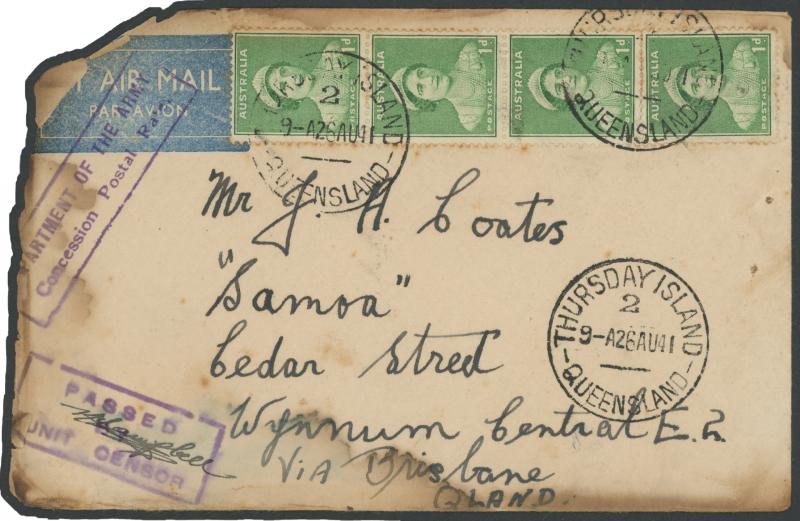 AIR MAIL
PAR AVION
AUSTRALIA 1d POSTAGE
AUSTRALIA 1d POSTAGE
AUSTRALIA 1d POSTAGE
AUSTRALIA 1d POSTAGE
ISLAND
2
9-A26AU41
QUEENSLAND
ISLAND
QUEENSLAND
ARTMENT OF THE ARMY
Concession Postal Rate
Mr J. H. Coates
"Samoa"
Cedar Street
Wynnum Central E.2
Via Brisbane
QLAND.
THURSDAY ISLAND
2
9-A26AU41
-QUEENSLAND-
PASSED
UNIT CENSOR